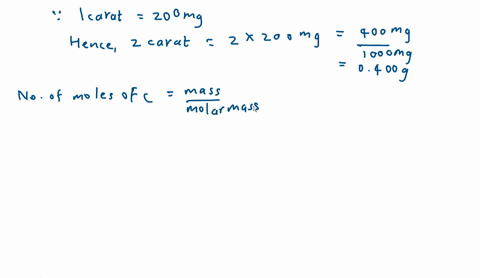 ∵ 1 carat = 200 mg
Hence, 2 carat = 2 × 200 mg = 400 mg
1000 mg
= 0.400 g
No. of moles of C = mass
molar mass